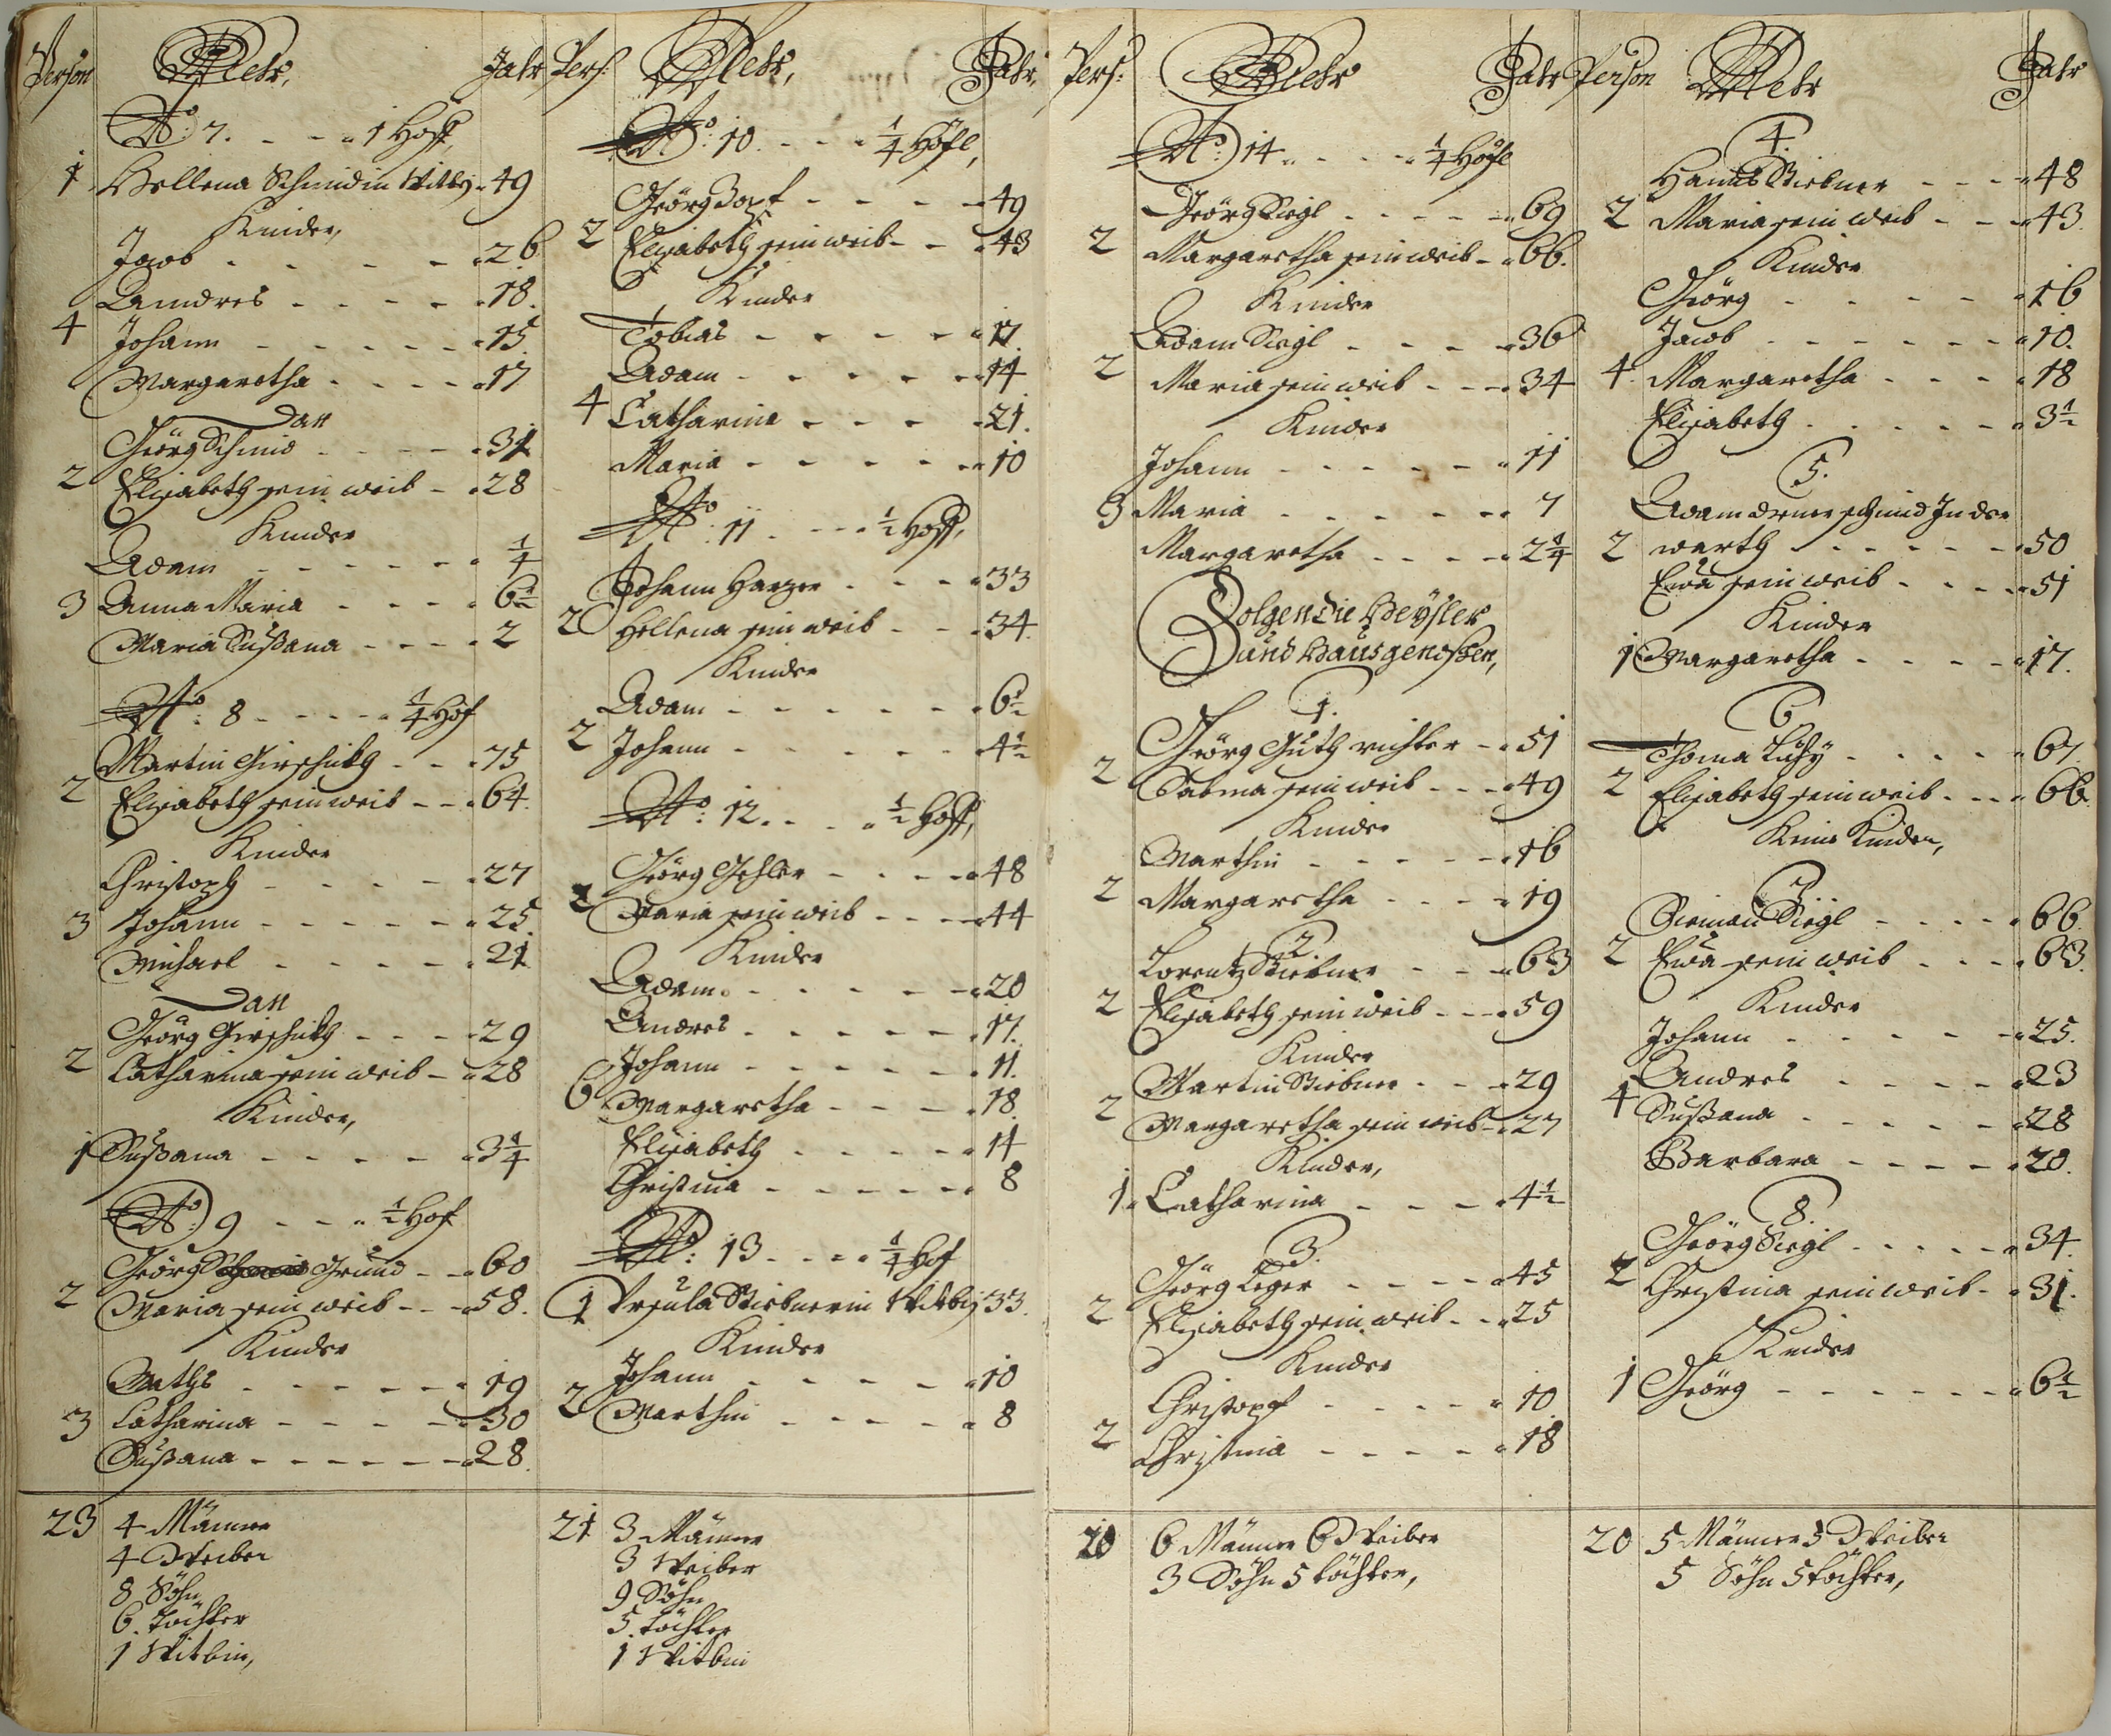 Person Nehr, Jahr
No: 7. 1 Hoff,
1 Hellena Schmidin Witby 49
Kinder,
Jacob 26
Andres 18.
4 Johann 15.
Margaretha 17
Dan
Georg Schmid 34
2 Elisabeth sein weib 28
Kinder
Adam 1/4
3 Anna Maria 6 1/2
Maria Sußana 2
No: 8 1/4 Hof
Martin Girschickh 75
2 Elisabeth sein weib 64.
Kinder
Christoph 27
3 Johann 25.
Michael 21
Dan
Georg Girschickh 29
2 Catharina sein weib 28
Kinder,
1 Sußana 3 1/4
No: 9 1/2 Hof
Georg Grund 60
2 Maria sein weib 58.
Kinder
Maths 19
3 Catharina 30
Sußana 28.
23 4 Männer
4 Weiber
8 Söhn
6. Töchter
1 Witbin,
Pers: Nehr, Jahr,
No: 10. 1/4 Höfl,
Georg Zopf 49
2 Elisabeth sein weib 43
Kinder
Tobias 17.
Adam 14
4 Catharina 21.
Maria 10
No: 11 1/2 Hoff,
Johann Harzer 33
2 Hellena sein weib 34.
Kinder
Adam 6 1/2
2 Johann 4 1/2
No: 12. 1/2 Hoff,
Georg Gehler 48
2 Maria sein weib 44
Kinder
Adam 20
Andres 17.
Johann 11.
6 Margaretha 18.
Elisabeth 14
Christina 8
No: 13 1/4 Hof
1 Vrsula Stiebnerin Witbin 33.
Kinder
Johann 10
2 Marthin 8
21 3 Männer
3 Weiber
9 Söhn
5. Töchter
1 Witbin
Pers: Nehr Jahr
No: 14. 1/4 Höfl
Georg Siegl 69
2 Margaretha sein weib 66.
Kinder
Adam Siegl 36
2 Maria sein weib 34
Kinder
Johann 11
3 Maria 7
Margaretha 2 1/4
Folgen die Heysler
und Hausgenoßen,
1.
Georg Guth richter 51
2 Sabina sein weib 49
Kinder
Marthin 16
2 Margaretha 19
2.
Lorentz Stiebner 63
2 Elisabeth sein weib 59
Kinder
Martin Stiebner 29
2 Margaretha sein weib 27
Kinder,
1. Catharina 4 1/2
3.
Georg Leger 45
2 Elisabeth sein weib 25
Kinder
Christopf 10
2 Christina 18
20 6 Männer 6 Weiber
3 Söhn 5 töchter,
Person Nehr Jahr
4.
Hannß Stiebner 48
2 Maria sein weib 43.
Kinder
Georg 16
Jacob 10.
4. Margaretha 18
Elisabeth 3 1/2
5.
Adam schmid In der
2 warth 50
Eva sein weib 51
Kinder
1 Margaretha 17.
6
Thoma Luhÿ 67.
2 Elisabeth sein weib 66.
Keine Kinder,
7.
Siemon Siegl 66.
2 Eva sein weib 63.
Kinder
Johann 25.
Andres 23
4 Sußana 28
Barbara 20.
8.
Georg Siegl 34.
2 Christina sein weib 31.
Kinder
1 Georg 6 1/2
20 5 Männer 5 Weiber
5 Söhn 5 töchter,